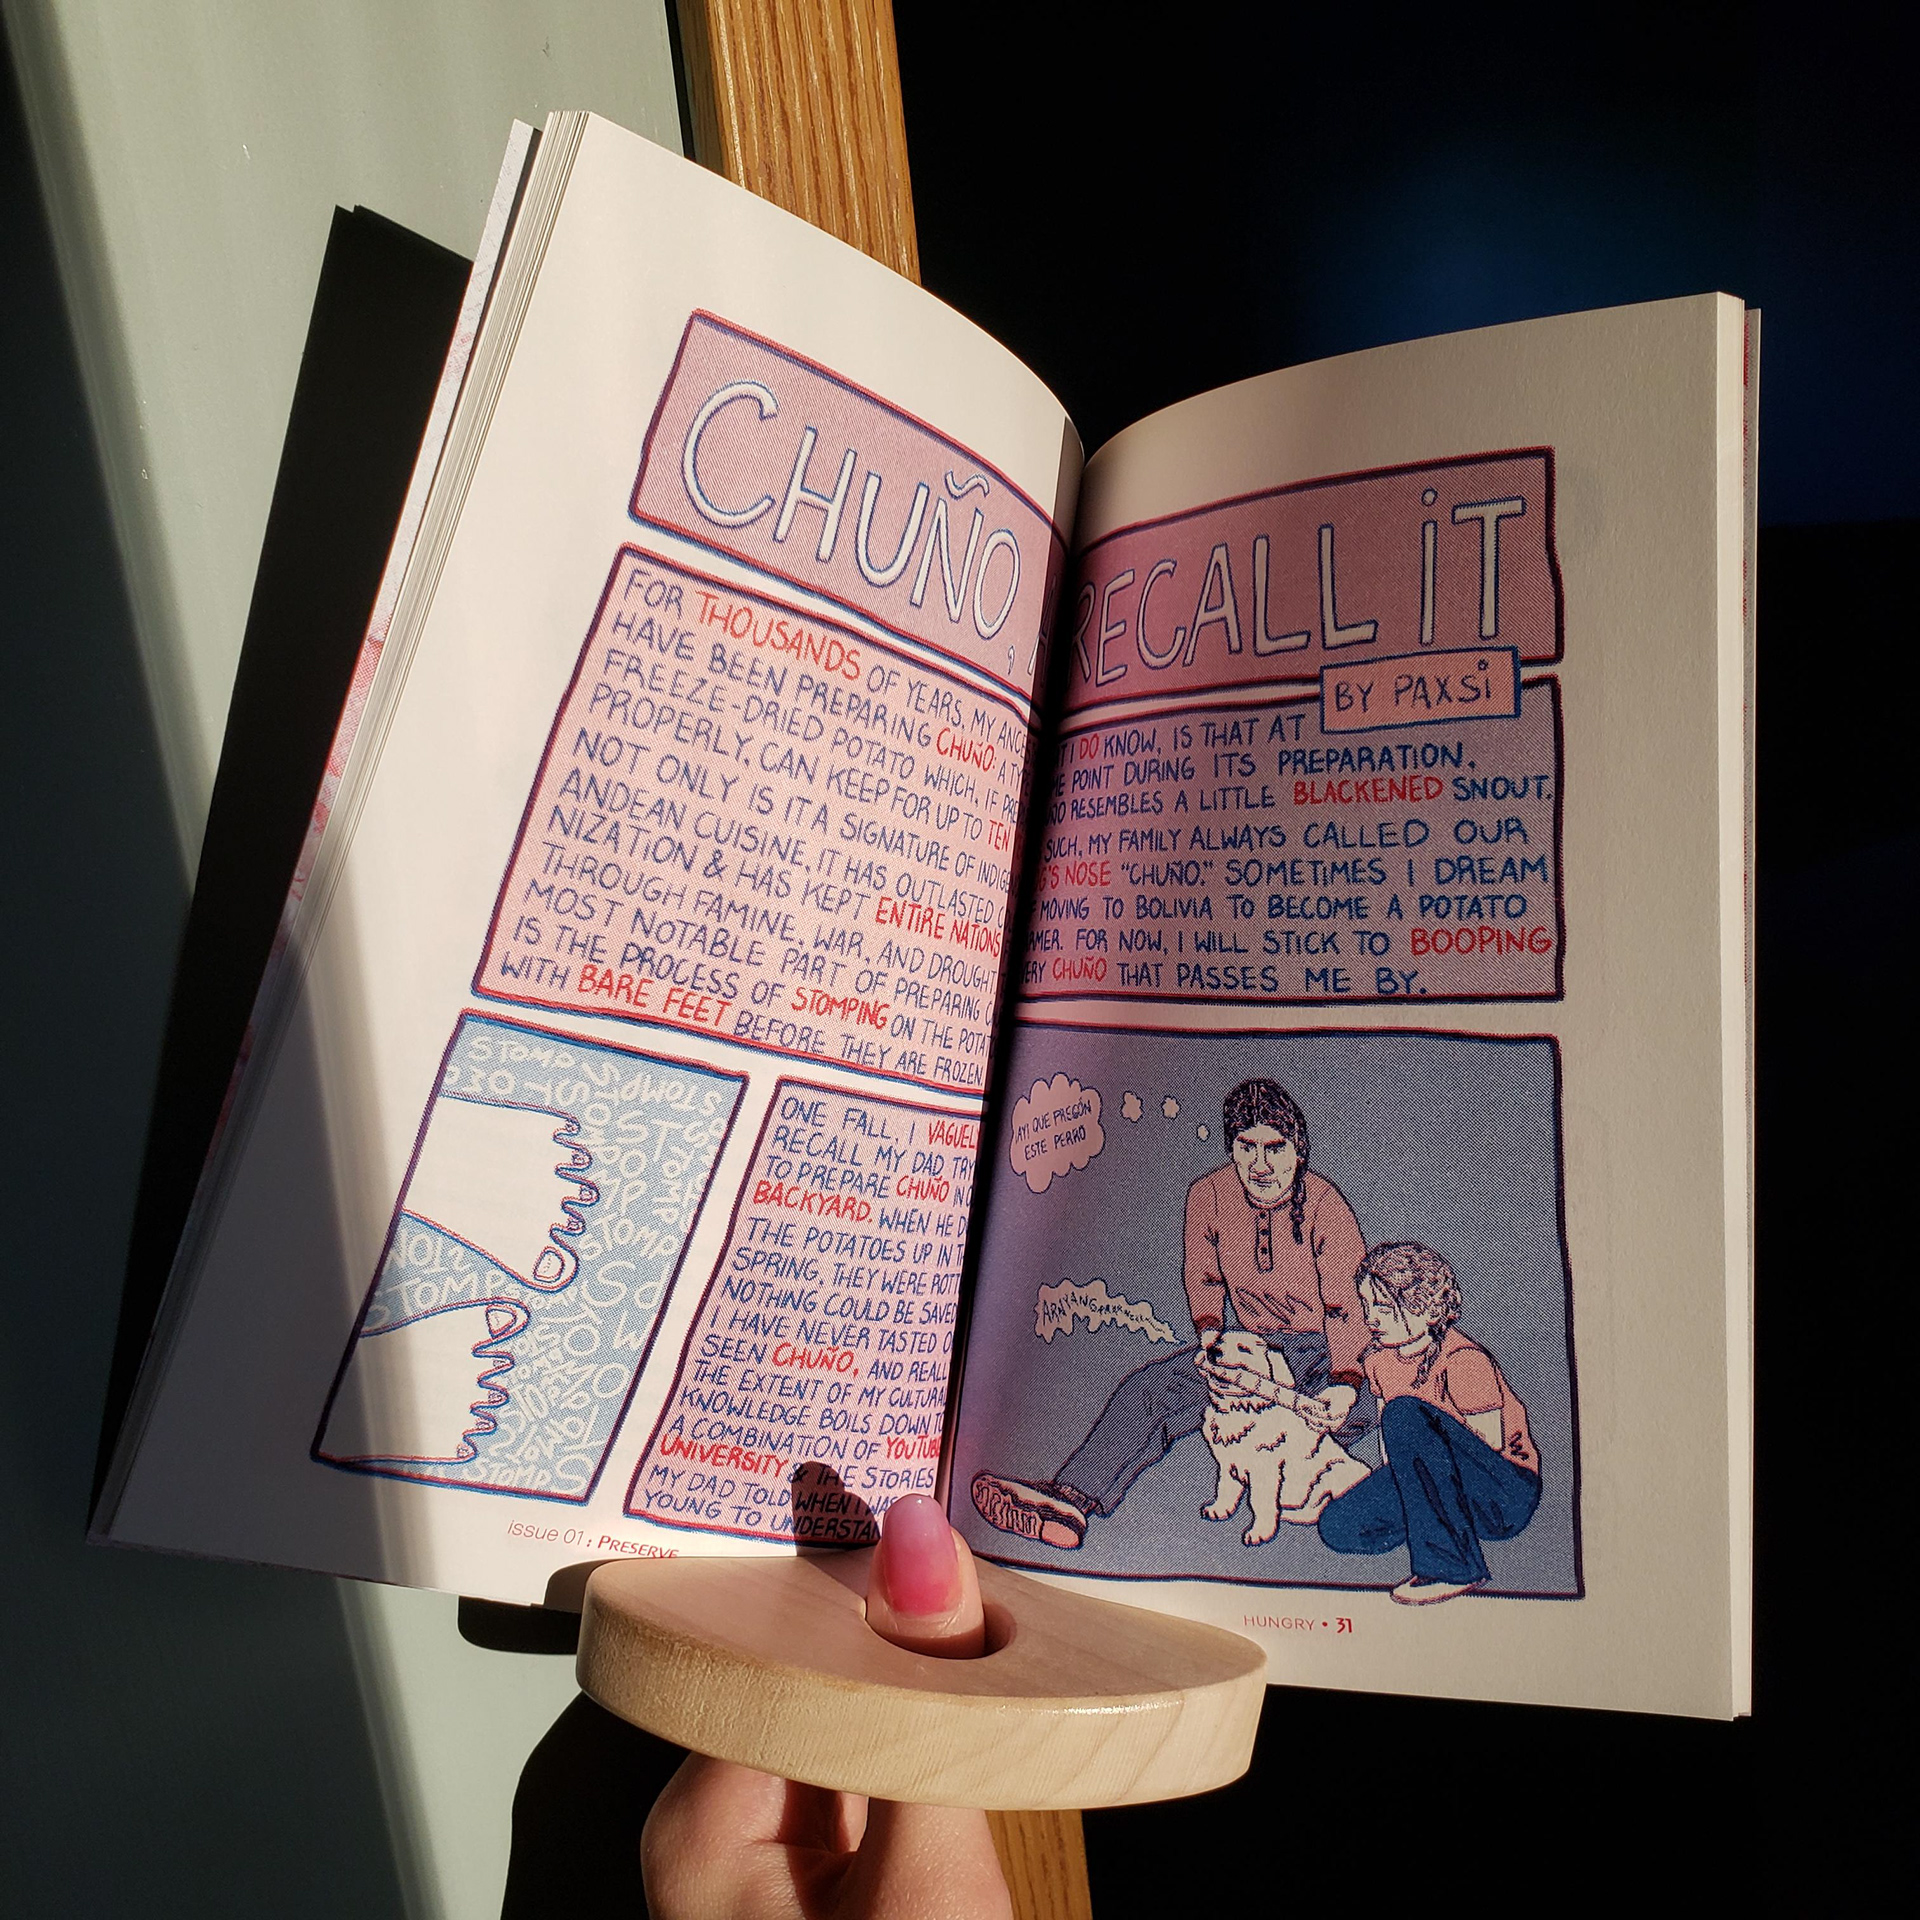 CHUÑO, RECALL iT
BY PAXSi
FOR THOUSANDS OF YEARS, MY
HAVE BEEN PREPARING CHUÑO: A
FREEZE-DRIED POTATO WHICH, IF
PROPERLY, CAN KEEP FOR UP TO TEN
NOT ONLY IS IT A SIGNATURE OF
ANDEAN CUISINE, IT HAS OUTLASTED
NIZATION & HAS KEPT ENTIRE NATIONS
THROUGH FAMINE, WAR, AND DROUGHT
MOST NOTABLE PART OF PREPARING
IS THE PROCESS OF STOMPING ON THE
WITH BARE FEET BEFORE THEY ARE FROZEN.
STOMP STOMP STOMP
STOMP
STOMP
STOMP
STOMPS
ONE FALL, I
RECALL MY DAD
TO PREPARE CHUÑO IN
BACKYARD. WHEN HE
THE POTATOES UP IN
SPRING, THEY WERE
NOTHING COULD BE SAVED
I HAVE NEVER TASTED
SEEN CHUÑO, AND
THE EXTENT OF MY
KNOWLEDGE BOILS DOWN TO
A COMBINATION OF YOUTUBE
UNIVERSITY & THE STORIES
MY DAD TOLD WHEN I WAS
YOUNG TO
issue 01: PRESERVE
I DO KNOW, IS THAT AT
POINT DURING ITS PREPARATION,
RESEMBLES A LITTLE BLACKENED SNOUT.
SUCH, MY FAMILY ALWAYS CALLED OUR
NOSE "CHUÑO." SOMETIMES I DREAM
MOVING TO BOLIVIA TO BECOME A POTATO
FOR NOW, I WILL STICK TO BOOPING
CHUÑO THAT PASSES ME BY.
¡AY! QUE PREGÓN
ESTE PERRO
HUNGRY • 31